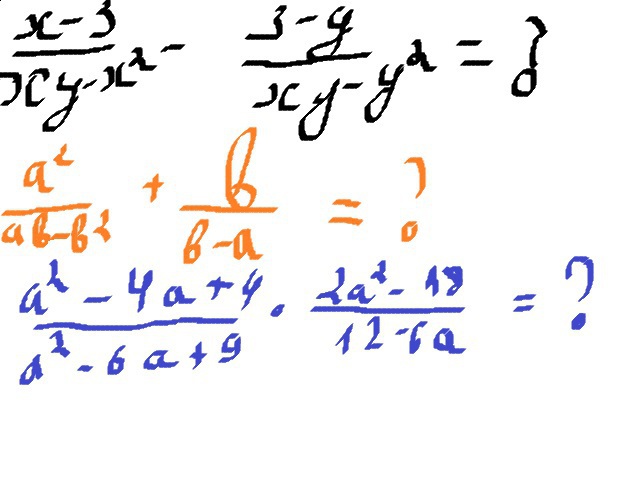 (x-3)/(xy-x²) - (3-y)/(xy-y²) = ?
a²/(ab-b²) + b/(b-a) = ?
(a²-4a+4)/(a²-6a+9) · (2a²-18)/(12-6a) = ?